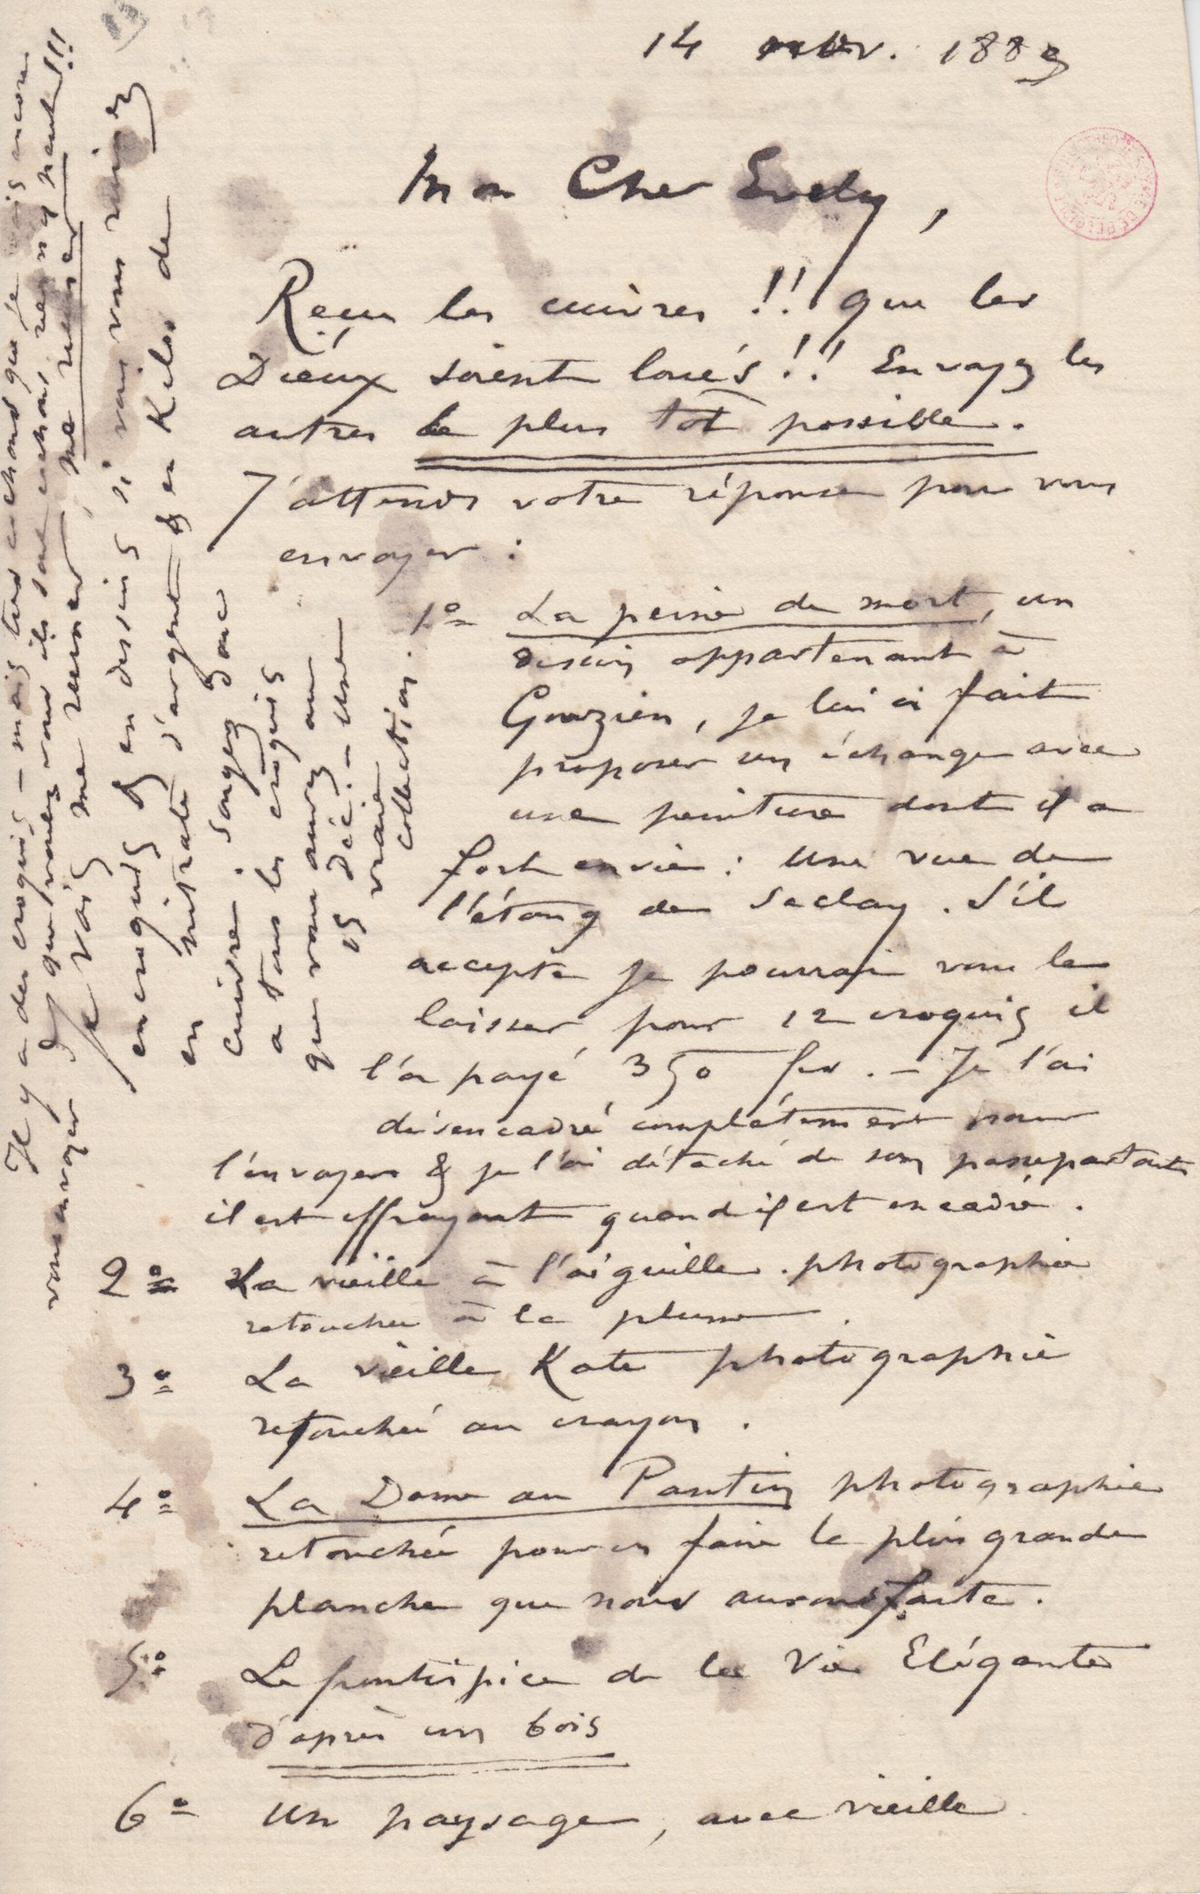 14 nov. 1883
Mon Cher Evely,
Reçu les cuivres !!! que les
Dieux soient loués !! Envoyez les
autres le plus tôt possible.
J'attends votre réponse pour vous
envoyer :
1° La peine de mort, un
dessin appartenant à
Gouzien, je lui ai fait
proposer un échange avec
une peinture dont il a
fort envie : Une vue de
l'étang de Saclay. S'il
accepte je pourrai vous le
laisser pour 12 croquis il
l'a payé 350 frs. – Je l'ai
désencadré complètement pour
l'envoyer & je l'ai détaché de son passepartout
il est effrayant quand il est encadré.
2° La vieille à l'aiguille. photographie
retouchée à la plume.
3° La vieille Kate photographie
retouchée au crayon.
4° La Dame au Pantin photographie
retouchée pour en faire la plus grande
planche que nous aurons faite.
5° Le frontispice de la Vie Elégante
d'après un bois
6° Un paysage, avec vieille
Il y a des croquis – mais tous cochons que je vais encore
vous envoyer & que voulez vous ils sont cochons rien n'y peut !!!
Je vais me ruiner, me ruiner
en croquis & en dessins si vous vous ruinez
en nitrate d'argent & en Kilos de
cuivre. Songez donc
a tous les croquis
que vous aurez au
15 Déc. – Une
vraie
collection.